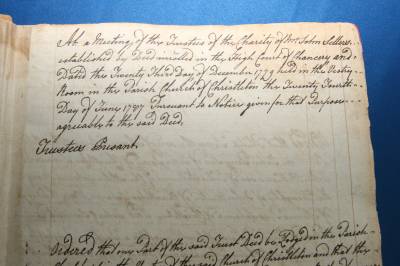 At a Meeting of the Trustees of the Charity of Mr John Sellers
established by Deed inrolled in the High Court of Chancery and
Dated the Twenty Third Day of December 1779 held in the Vestry
Room in the Parish Church of Christleton the Twenty Fourth
Day of June 1787 Pursuant to Notice given for that Purpose
agreeable to the said Deed.
Trustees Present.
Ordered that one Part of the said Trust Deed be Lodged in the Parish
of the said Church of Christleton and that the